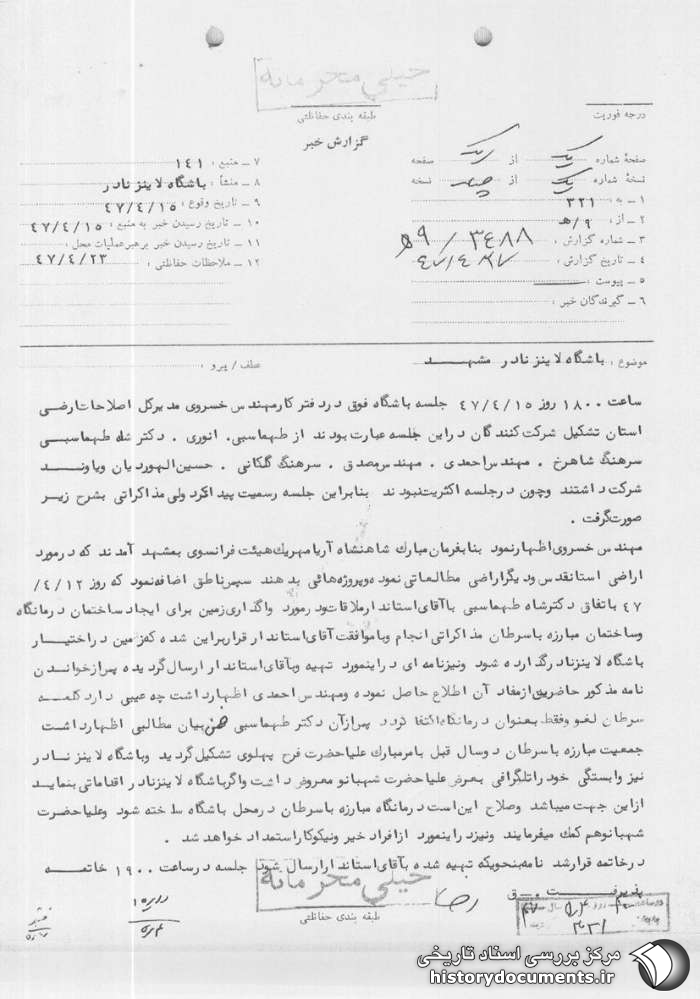 خیلی محرمانه
طبقه بندی حفاظتی
گزارش خبر
درجه فوریت
صفحهٔ شماره یک از یک صفحه
نسخهٔ شماره یک از چهار نسخه
۱ ـ به : ۳۲۱
۲ ـ از : ۹/ هـ
۳ ـ شماره گزارش : ۳۴۸۸ / ۹ه
۴ ـ تاریخ گزارش :
۵ ـ پیوست :
۶ ـ گیرندگان خبر :
۷ ـ منبع : ۱۴۱
۸ ـ منشأ : باشگاه لاینز نادر
۹ ـ تاریخ وقوع : ۴۷/۴/۱۵
۱۰ ـ تاریخ رسیدن خبر به منبع : ۴۷/۴/۱۵
۱۱ ـ تاریخ رسیدن خبر برهبر عملیات محل :
۱۲ ـ ملاحظات حفاظتی : ۴۷/۴/۲۳
موضوع : باشگاه لاینز نادر مشهـــد
عطف / پیرو :
ساعت ۱۸۰۰ روز ۴۷/۴/۱۵ جلسه باشگاه فوق در دفتر کار مهندس خسروی مدیرکل اصلاحات ارضی
استان تشکیل شرکت کنندگان در این جلسه عبارت بودند از طهماسبی . انوری . دکتر شاه طهماسبی
سرهنگ شاهرخ . مهندس احمدی . مهندس مصدق . سرهنگ گلکانی . حسین الهوردیان وباونـــد
شرکت داشتند وچون در جلسه اکثریت نبودند بنابراین جلسه رسمیت پیدا نکرد ولی مذاکراتی بشرح زیـر
صورت گرفت .
مهندس خسروی اظهار نمود بنا بفرمان مبارک شاهنشاه آریامهر یک هیئت فرانسوی بمشهد آمدند که در مورد
اراضی آستانقدس ودیگر اراضی مطالعاتی نموده وپروژه هائی بدهند سپس ناطق اضافه نمود که روز ۴/۱۲/
۴۷ باتفاق دکتر شاه طهماسبی با آقای استاندار ملاقات ودر مورد واگذاری زمین برای ایجاد ساختمان درمانگاه
وساختمان مبارزه با سرطان مذاکراتی انجام وبا موافقت آقای استاندار قرار بر این شده که زمین در اختیـار
باشگاه لاینز نادر گذارده شود ونیز نامه ای در اینمورد تهیه وبآقای استاندار ارسال گردیده پس از خوانـدن
نامه مذکور حاضرین از مفاد آن اطلاع حاصل نموده ومهندس احمدی اظهار داشت چه عیبی دارد کلمــه
سرطان لغو وفقط بعنوان درمانگاه اکتفا گردد پس از آن دکتر طهماسبی ضمن بیان مطالبی اظهار داشت
جمعیت مبارزه با سرطان دوسال قبل بامر مبارک علیاحضرت فرح پهلوی تشکیل گردید وباشگاه لاینز نـادر
نیز وابستگی خود را تلگرافی بعرض علیاحضرت شهبانو معروض داشت واگر باشگاه لاینز نادر اقداماتی بنمایـد
از این جهت میباشد وصلاح این است درمانگاه مبارزه با سرطان در محل باشگاه ساخته شود وعلیاحضرت
شهبانو هم کمک میفرمایند ونیز در اینمورد از افراد خیر ونیکوکار استمداد خواهد شد .
در خاتمه قرار شد نامه بنحویکه تهیه شده بآقای استاندار ارسال شود جلسه در ساعت ۱۹۰۰ خاتمـــه
پذیرفـــت . ـ ق
خیلی محرمانه
طبقه بندی حفاظتی
رضا
مرکز بررسی اسناد تاریخی
historydocuments.ir